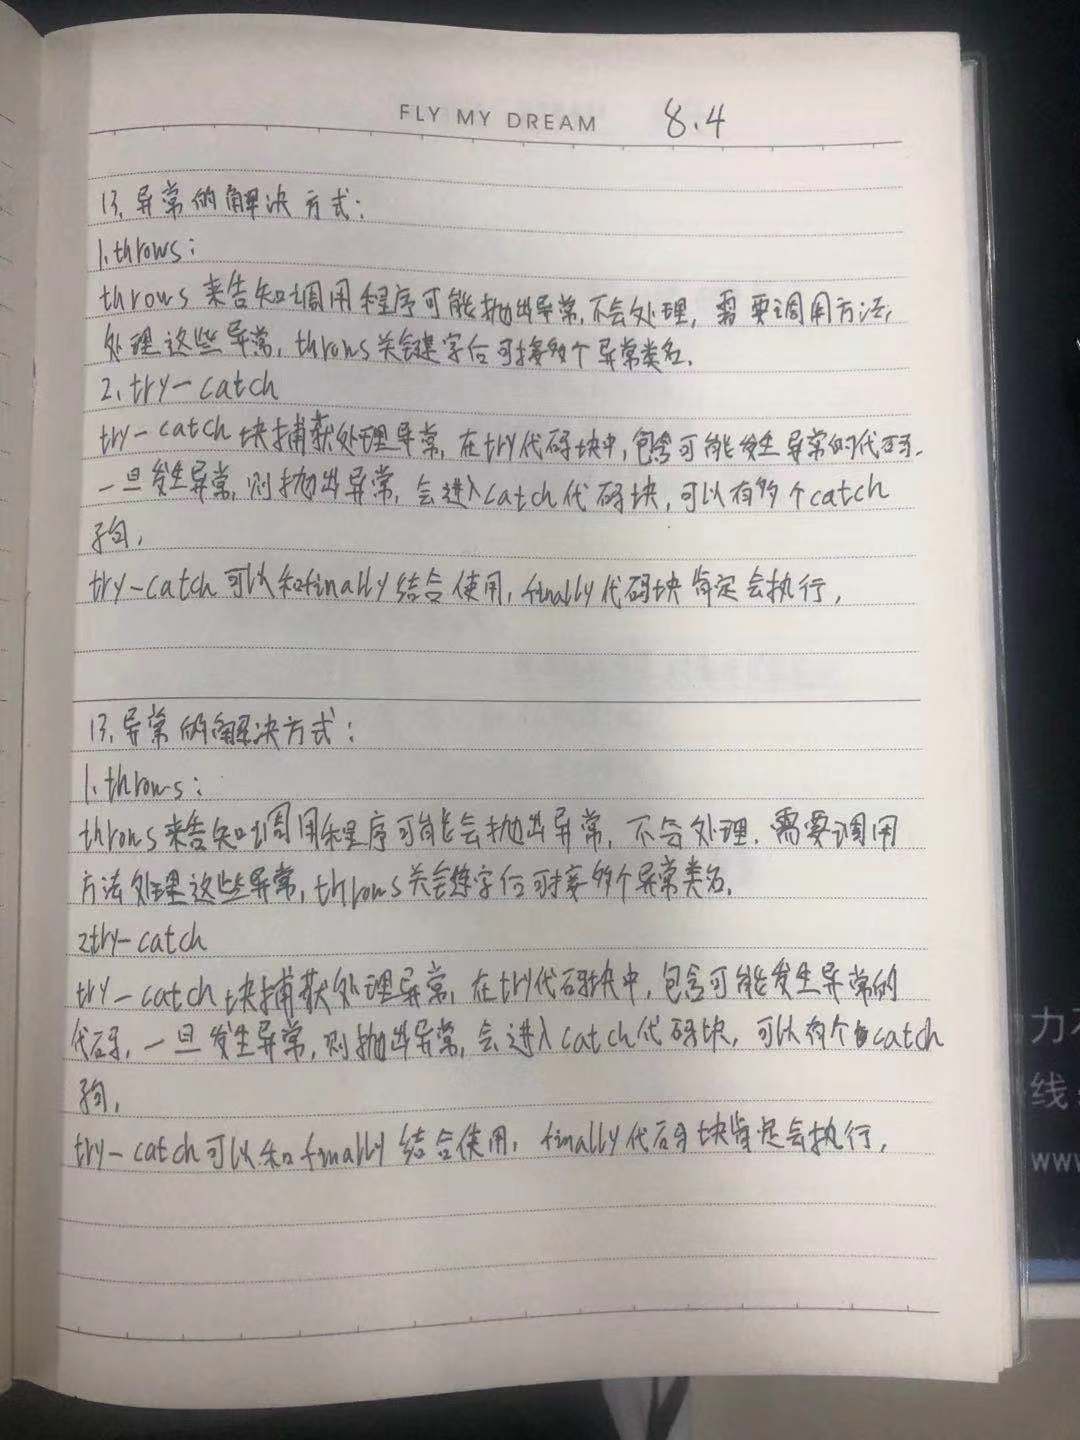 FLY MY DREAM 8.4
13.异常的解决方式:
1.throws:
throws来告知调用程序可能抛出异常,不会处理,需要调用方法,
处理这些异常,throws关键字后可接多个异常类名.
2.try-catch
try-catch块捕获处理异常,在try代码块中,包含可能发生异常的代码.
一旦发生异常,则抛出异常,会进入catch代码块,可以有多个catch
子句,
try-catch可以和finally结合使用,finally代码块肯定会执行,
13.异常的解决方式:
1.throws:
throws来告知调用程序可能会抛出异常,不会处理.需要调用
方法处理这些异常,throws关键字后可接多个异常类名.
2try-catch
try-catch块捕获处理异常,在try代码块中,包含可能发生异常的
代码,一旦发生异常,则抛出异常,会进入catch代码块,可以有个catch
子句,
try-catch可以和finally结合使用,finally代码块肯定会执行,
力
线
www